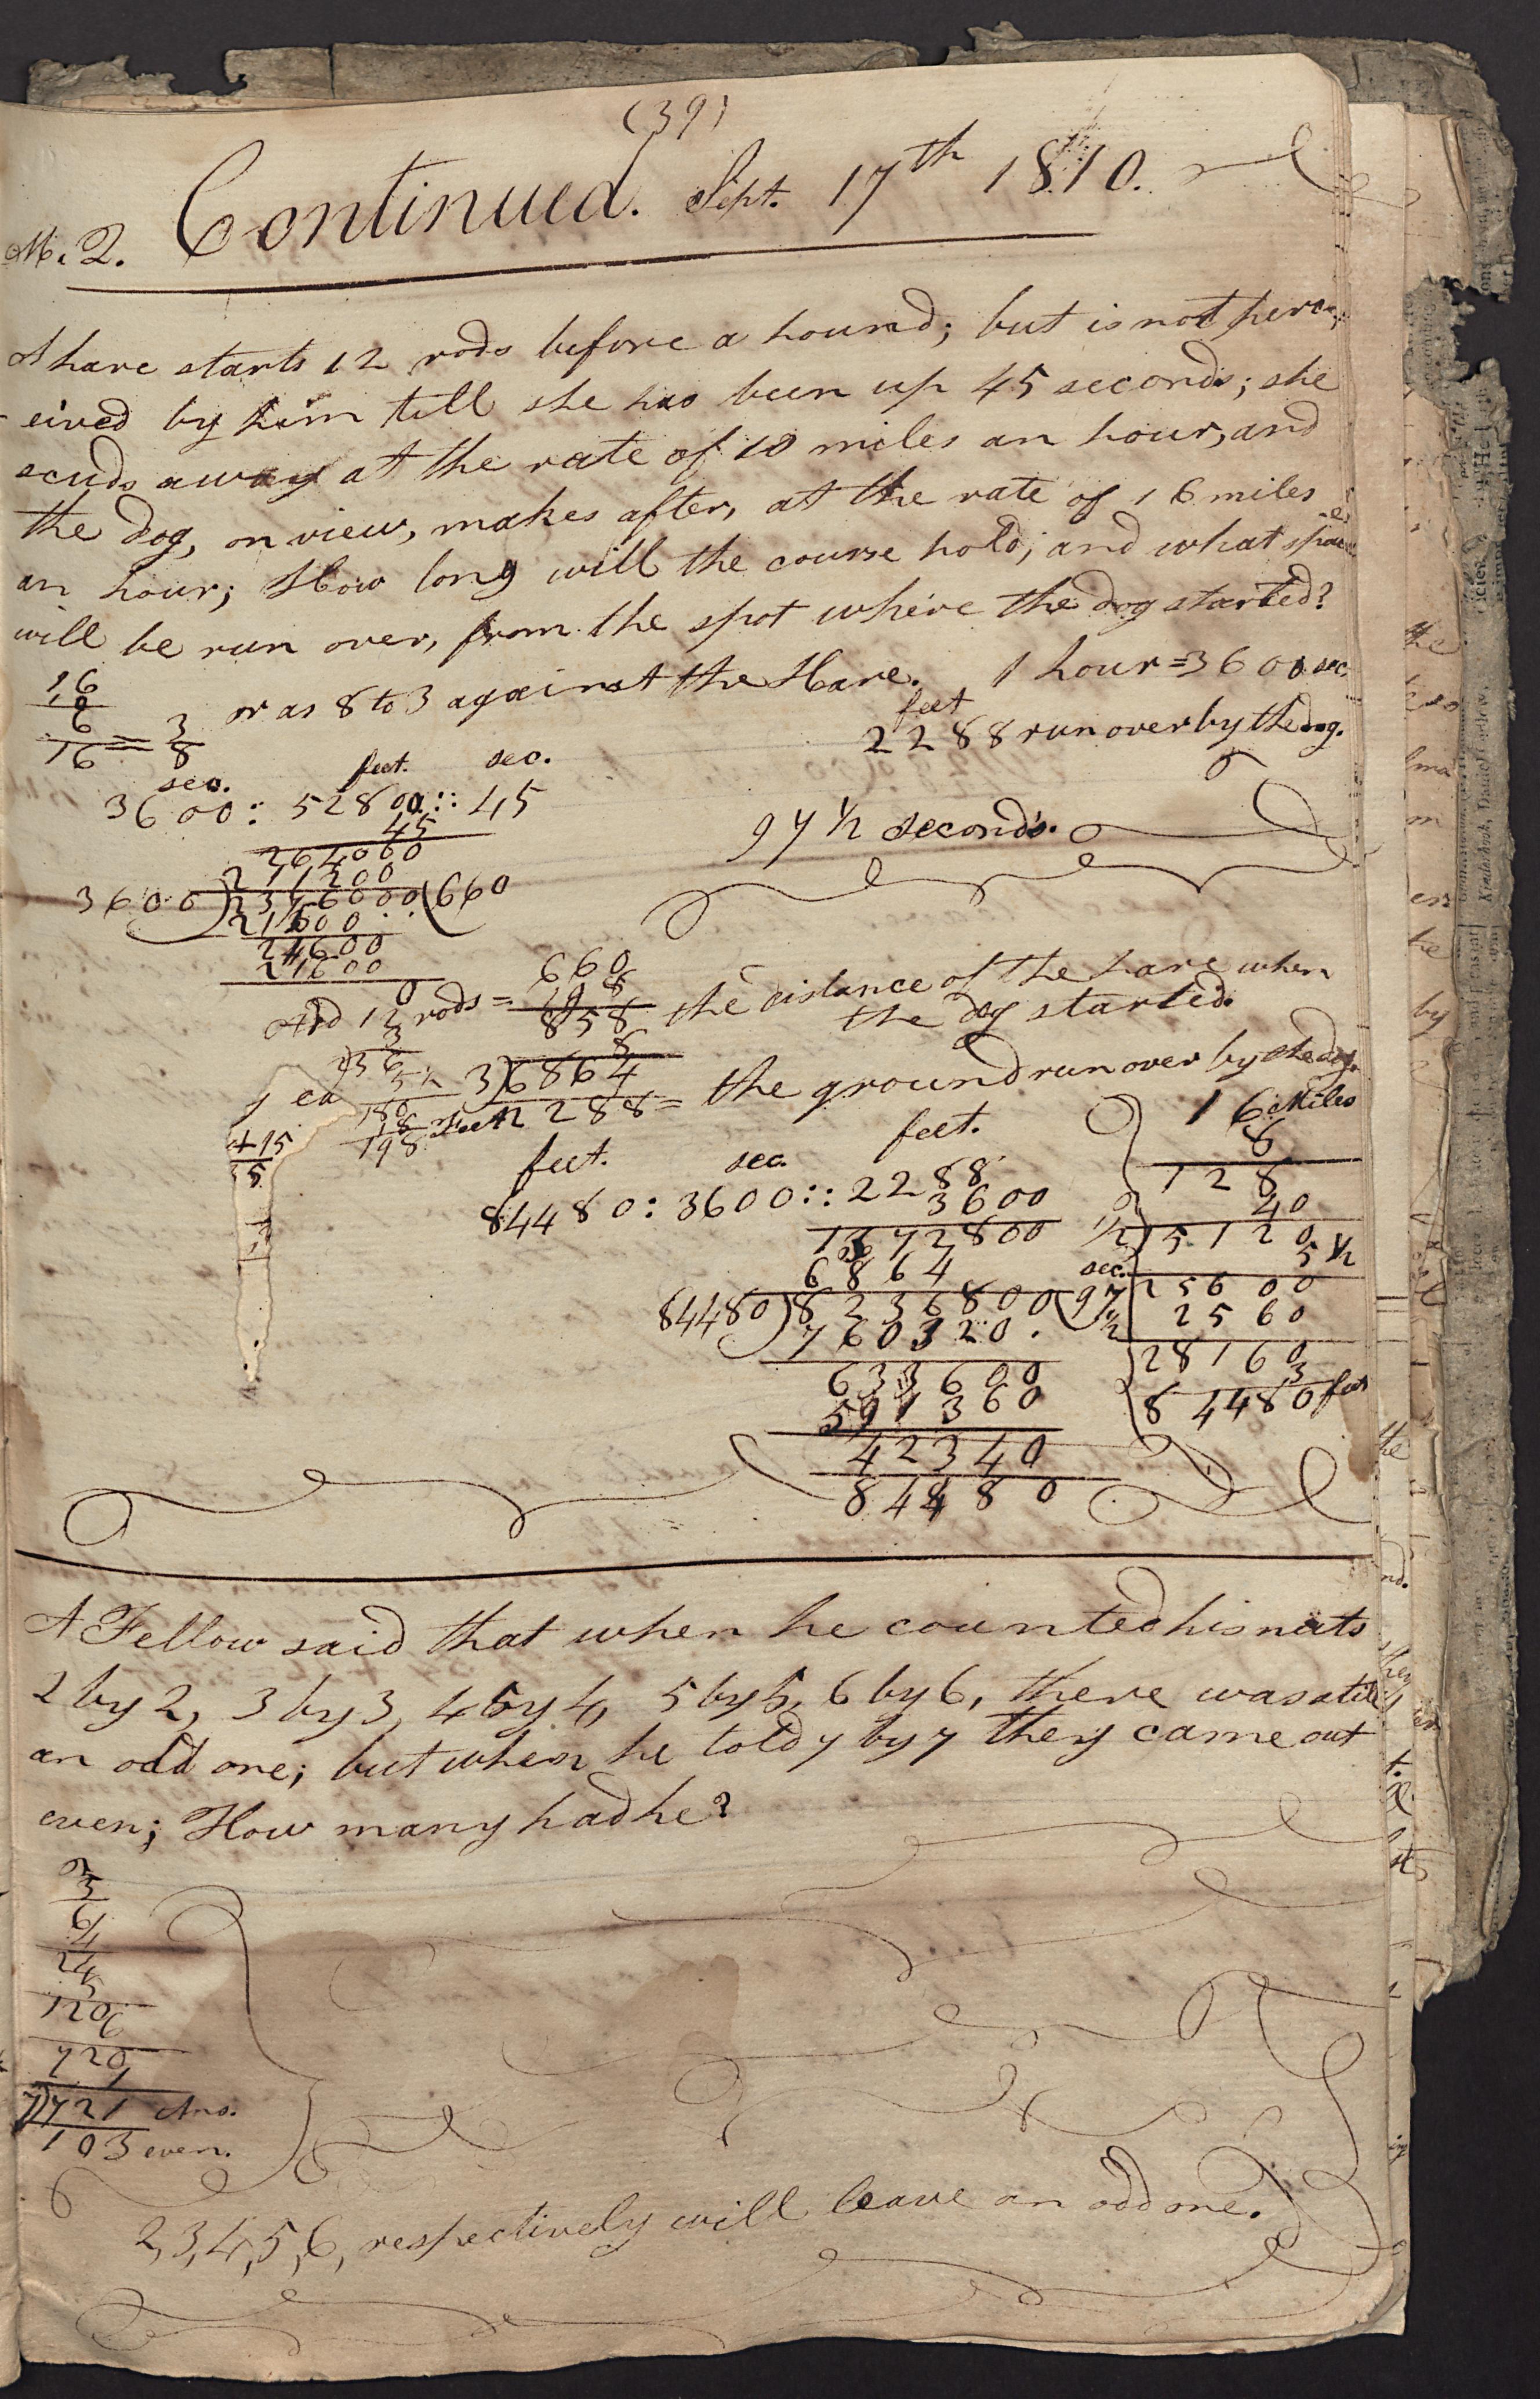 (39)
M. 2. Continued. Sept. 17th 1810.
A hare starts 12 rods before a hound; but is not perc
eived by him till she has been up 45 seconds; she
scuds away at the rate of 10 miles an hour, and
the dog, on view, makes after, at the rate of 16 miles
an hour; How long will the course hold; and what space
will be run over, from the spot where the dog started?
16
10
6/16 = 3/8 or as 8 to 3 against the Hare. 1 hour = 3600 sec.
feet
2288 run over by the dog.
sec. feet. sec.
3600 : 52800 :: 45
45
264000
211200
97 1/2 seconds.
3600)2376000(660
21600
21600
21600
0
660
And 12 rods = 198
858 the distance of the hare when
the dog started.
8
3)6864
2288 = the ground run over by the dog.
3
36
5 1/2
180
18
198 feet
+15
5
feet. sec. feet.
84480 : 3600 :: 2288
3600
1372800
6864
sec.
84480)8236800(97 1/2
760320
633600
591360
42240
84480
16 Miles
8
128
40
1/2)5120
5 1/2
25600
2560
28160
3
84480 feet
A Fellow said that when he counted his nuts
2 by 2, 3 by 3, 4 by 4, 5 by 5, 6 by 6, there was still
an odd one; but when he told 7 by 7 they came out
even; How many had he?
2
3
6
4
24
5
120
6
720
1
7)721 Ans.
103 even.
2, 3, 4, 5, 6, respectively will leave an odd one.